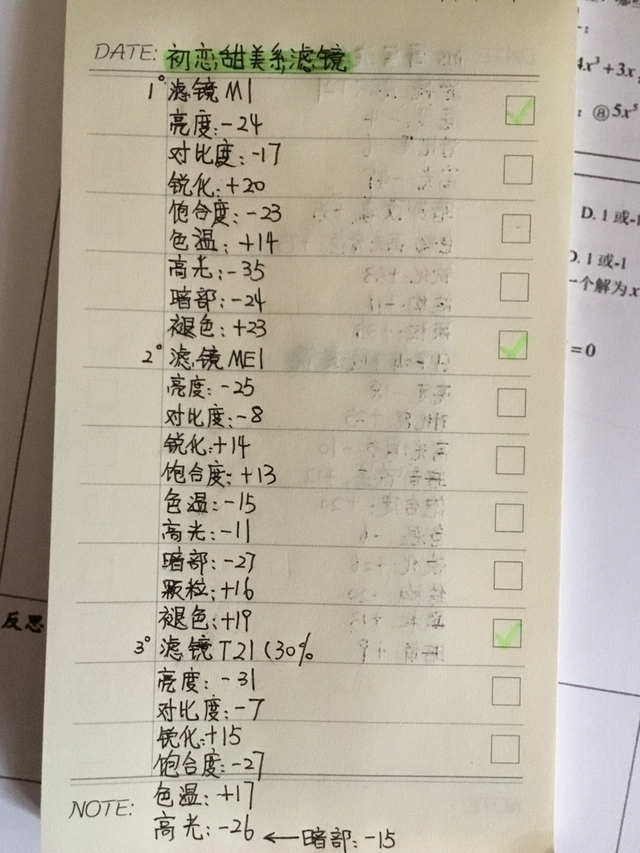 DATE: 初恋甜美系滤镜
1° 滤镜M1
亮度:-24
对比度:-17
锐化:+20
饱合度:-23
色温:+14
高光:-35
暗部:-24
褪色:+23
2° 滤镜ME1
亮度:-25
对比度:-8
锐化:+14
饱合度:+13
色温:-15
高光:-11
暗部:-27
颗粒:+16
褪色:+19
3° 滤镜T21(30%
亮度:-31
对比度:-7
锐化:+15
饱合度:-27
色温:+17
NOTE:
高光:-26 ←暗部:-15
反思
4x³+3x
⑧5x⁵
D.1或-1
D.1或-1
一个解为x
=0